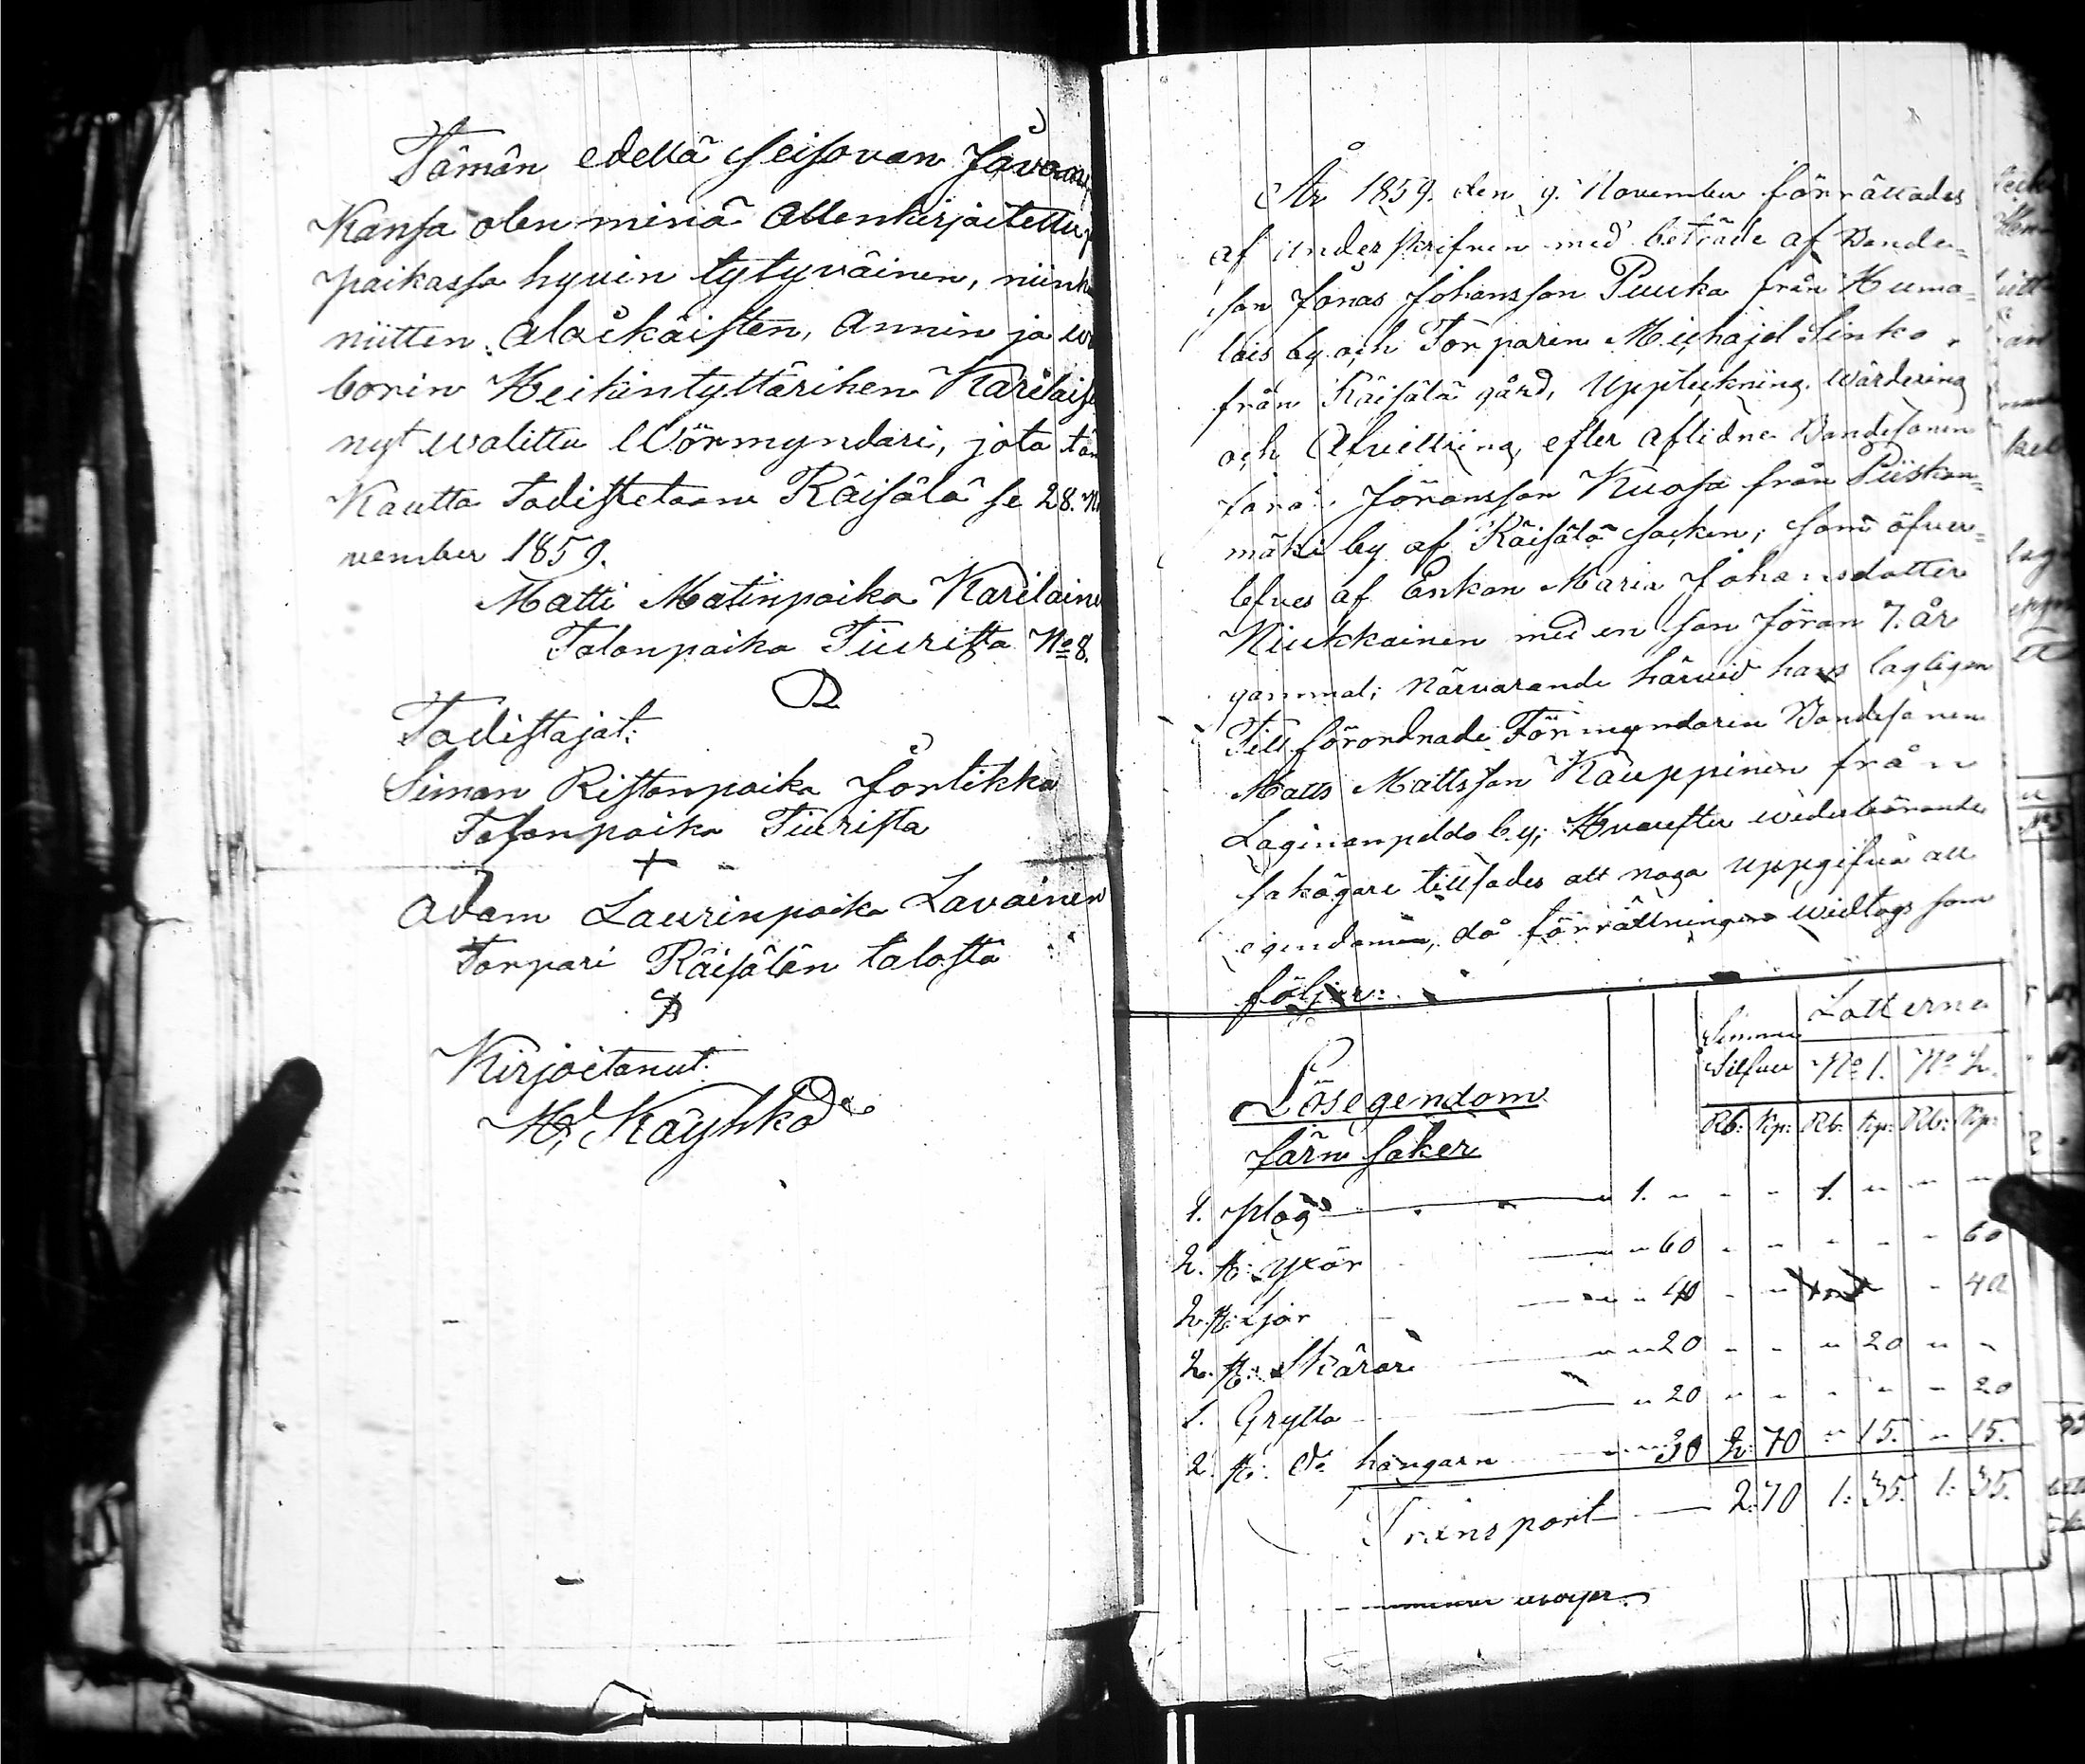 Tämän edellä seisovan Javon
Kansa olen minä Allenkirjoitettu
paikassa hyvin tytyväinen, niinku
niitten alaikäisten, Annin ja Wa
borin Heikintyttärihen Karilaise
nyt walittu Wörmyndäri, jota tän
Kautta Todistetaan Räisälä se 28. No
vember 1859.
Matti Matinpoika Karilaine
Talonpoika Tiurista No 8.
Todistajat:
Simon Ristonpoika Jortikka
Talonpoika Tiurista
Adam Laurinpoika Lavainen
Torpari Räisälän talosta
Kirjoitanut:
H. Käyhkö
År 1859. den 9. November förrättades
af underskrifven med beträde af Bonde-
son Jonas Johansson Puuka från Huma-
lais by och Torparen Michajel Sinko
från Räisälä gård, Uppteckning, Wärdering
och Afvittring, efter aflidne Bondesonen
Jöransson Kuosa från Piiskon-
mäki by af Räisälä Socken; som öfver-
lefves af Enkan Maria Johansdotter
Niukkainen med en son Jöran 7. år
gammal; närvarande härvid hans lagligen
Till förordnade Förmyndaren Bondesonen
Matts Mattsson Kauppinen från
Laginanpeldo by; Hvarefter wederbörande
sakägare tillsades att noga uppgifva all
egendomen, då förrättningen widtogs som
följer:
Summa Lotterna
Silfver No 1. No 2.
Lösegendom
Rb: Kp: Rb: Kp: Rb: Kp:
Järn saker
1. plog 1. " " " 1. " " "
2. st: yxor " 60 " " " " " 60
2. st: Ljor " 40 " " " " 40
2. st: Skäror " 20 " " " 20 " "
1. Grytta " 20 " " " " " 20
2. st: do hängarn " 30 2: 70 " 15. " 15.
Transport 2: 70 1: 35. 1: 35.